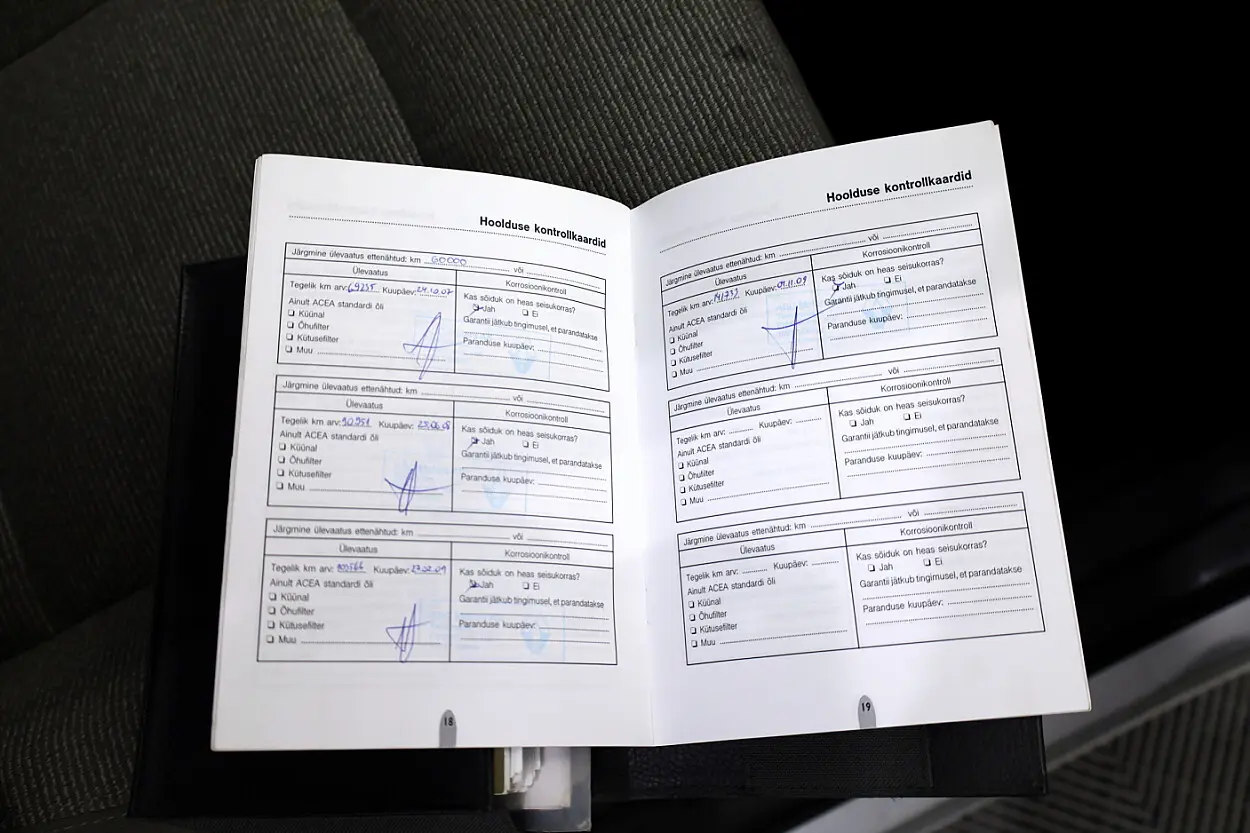 Hoolduse kontrollkaardid
Järgmine ülevaatus ettenähtud: km 60000 või
Ülevaatus
Korrosioonikontroll
Tegelik km arv: 69235 Kuupäev: 24.10.07
Kas sõiduk on heas seisukorras?
Jah Ei
Ainult ACEA standardi õli
Garantii jätkub tingimusel, et parandatakse
Küünal
Õhufilter
Kütusefilter
Paranduse kuupäev:
Muu
Järgmine ülevaatus ettenähtud: km või
Ülevaatus
Korrosioonikontroll
Tegelik km arv: 90951 Kuupäev: 25.06.08
Kas sõiduk on heas seisukorras?
Jah Ei
Ainult ACEA standardi õli
Garantii jätkub tingimusel, et parandatakse
Küünal
Õhufilter
Kütusefilter
Paranduse kuupäev:
Muu
Järgmine ülevaatus ettenähtud: km või
Ülevaatus
Korrosioonikontroll
Tegelik km arv: Kuupäev: 27.02.09
Kas sõiduk on heas seisukorras?
Jah Ei
Ainult ACEA standardi õli
Garantii jätkub tingimusel, et parandatakse
Küünal
Õhufilter
Kütusefilter
Paranduse kuupäev:
Muu
18
Hoolduse kontrollkaardid
Järgmine ülevaatus ettenähtud: km või
Ülevaatus
Korrosioonikontroll
Tegelik km arv: Kuupäev: 09.11.09
Kas sõiduk on heas seisukorras?
Jah Ei
Ainult ACEA standardi õli
Garantii jätkub tingimusel, et parandatakse
Küünal
Õhufilter
Kütusefilter
Paranduse kuupäev:
Muu
Järgmine ülevaatus ettenähtud: km või
Ülevaatus
Korrosioonikontroll
Tegelik km arv: Kuupäev:
Kas sõiduk on heas seisukorras?
Jah Ei
Ainult ACEA standardi õli
Garantii jätkub tingimusel, et parandatakse
Küünal
Õhufilter
Kütusefilter
Paranduse kuupäev:
Muu
Järgmine ülevaatus ettenähtud: km või
Ülevaatus
Korrosioonikontroll
Tegelik km arv: Kuupäev:
Kas sõiduk on heas seisukorras?
Jah Ei
Ainult ACEA standardi õli
Garantii jätkub tingimusel, et parandatakse
Küünal
Õhufilter
Kütusefilter
Paranduse kuupäev:
Muu
19